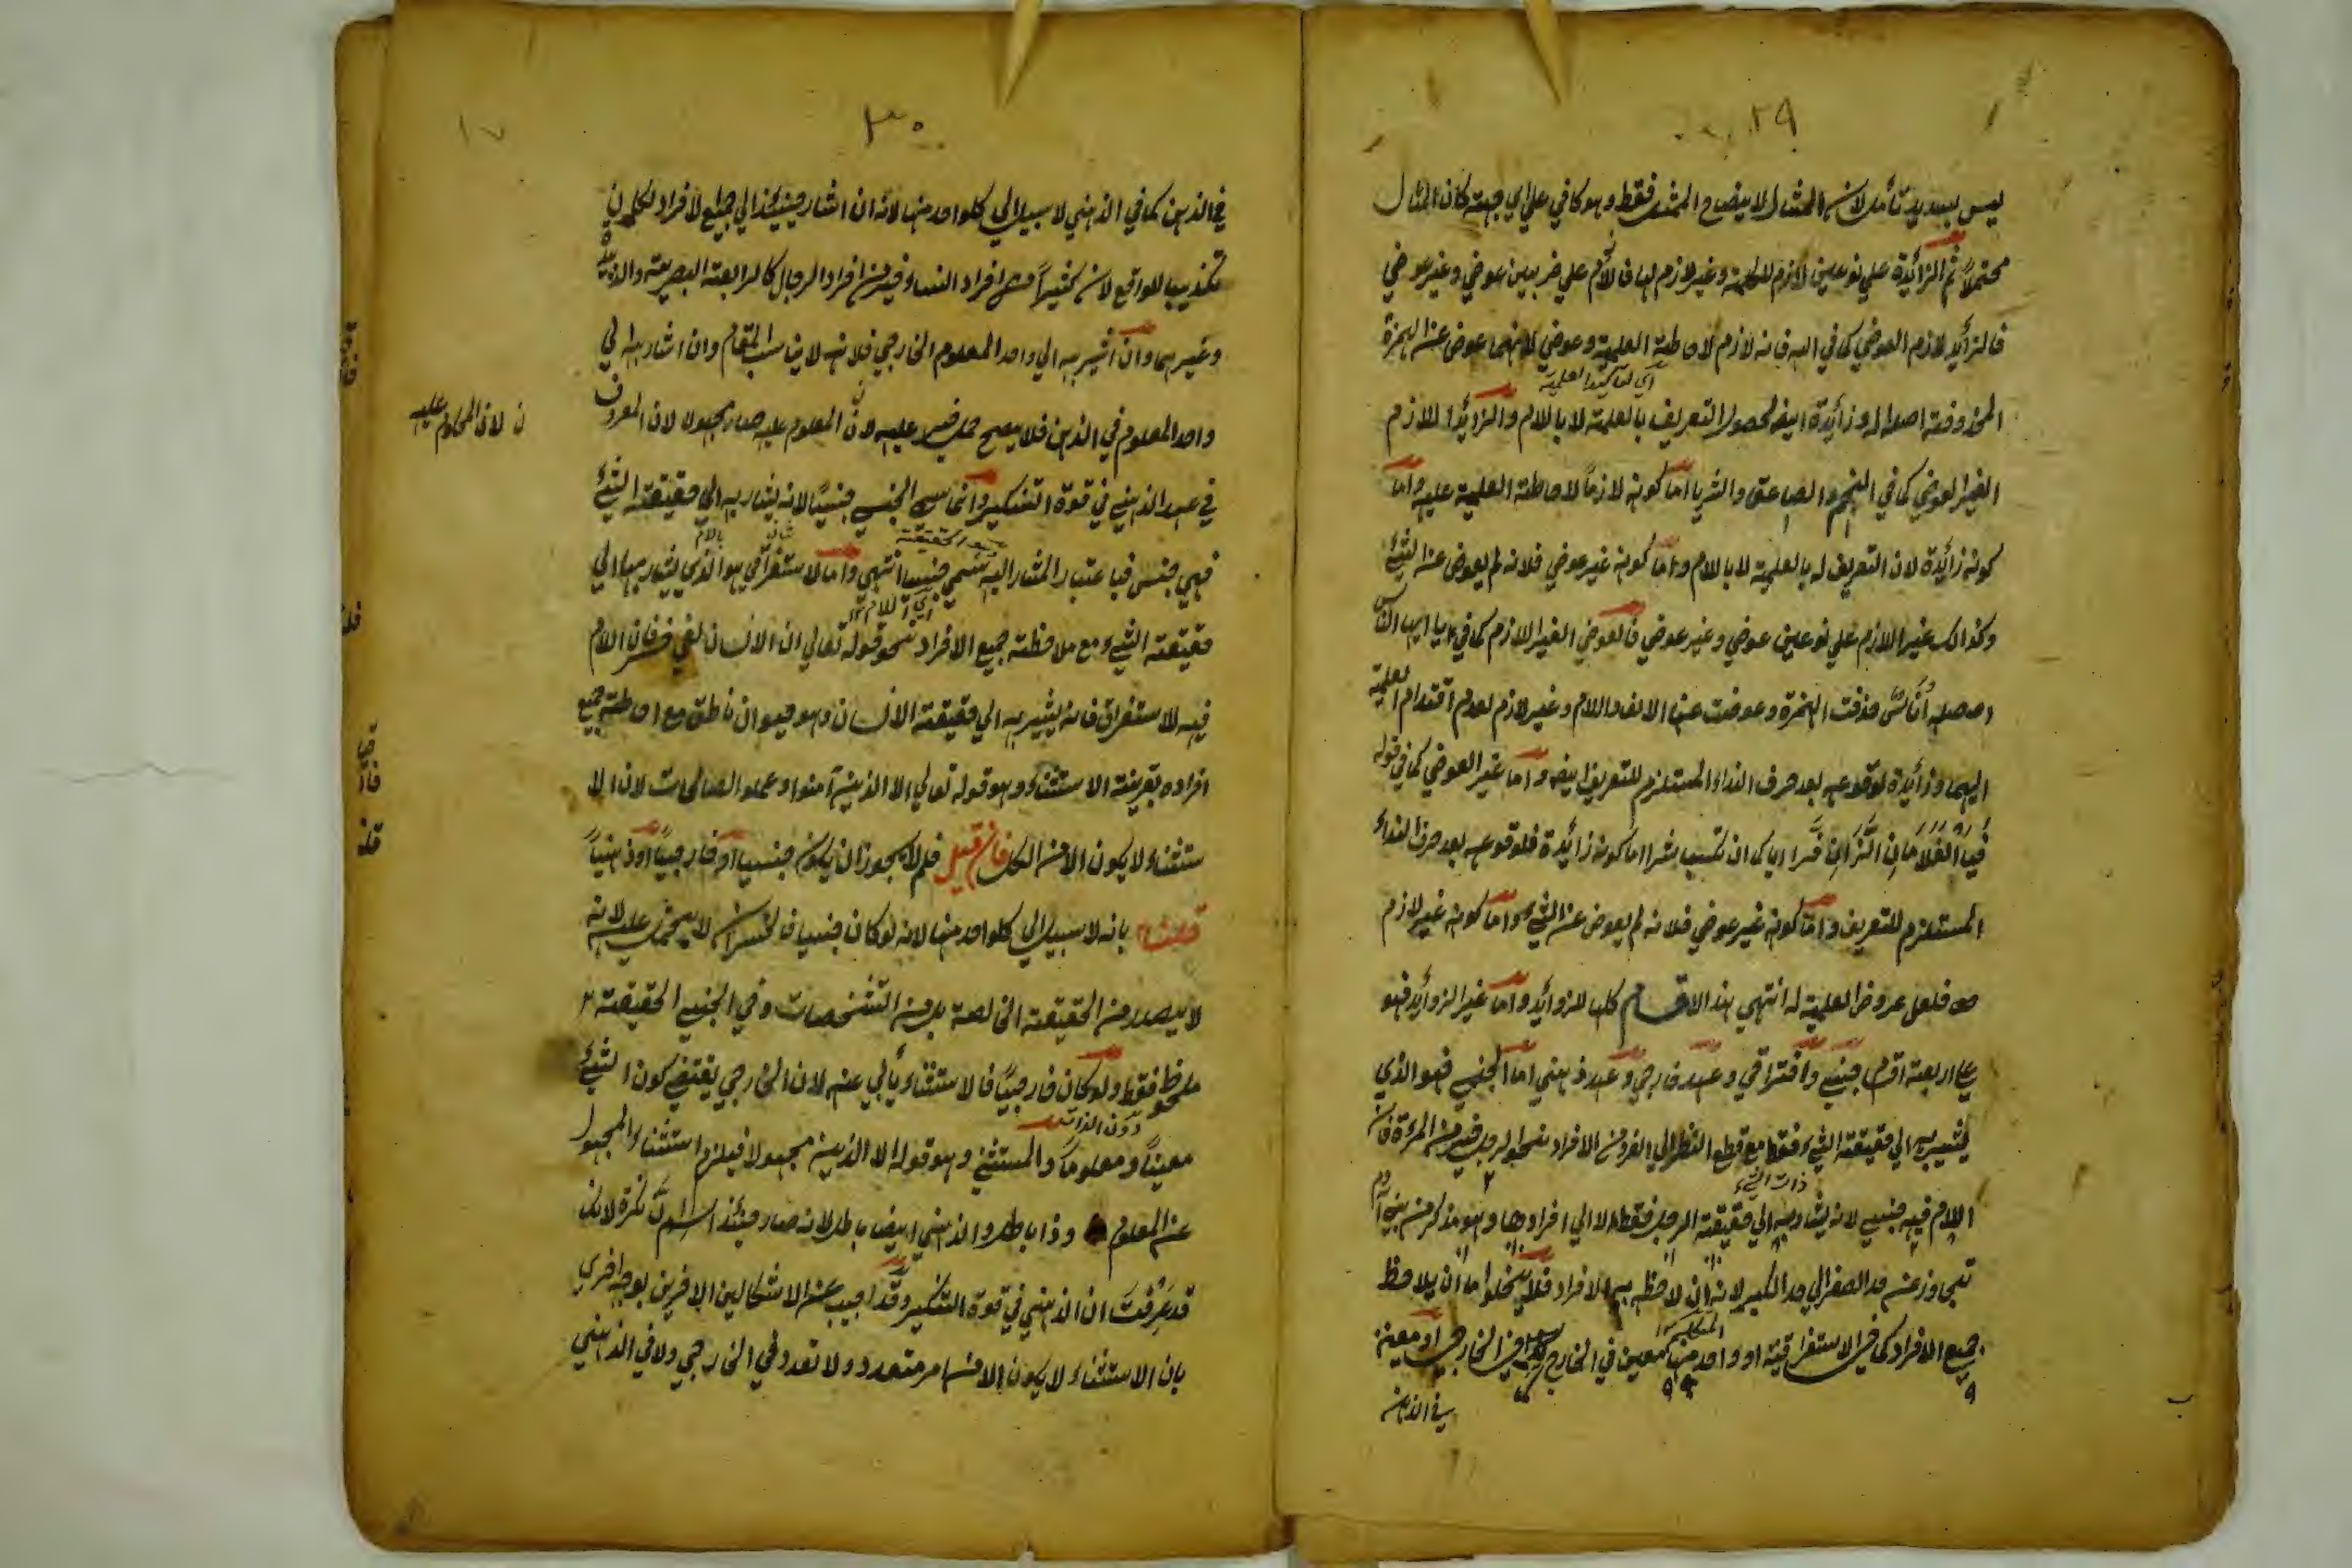 ٢٩
ليس بسديد تأمل لان المثال لايضاح الممثل فقط وهو كافي علي اي جهة كان المثال
محتملاً ثم الزائدة علي نوعين لازم للكلمة وغير لازم لها فاللازم علي ضربين عوضي وغير عوضي
فالزائد لازم العوضي كما في الله فانه لازم لاحاطة العلمية وعوضي لانها عوض عن الهمزة
اي لتاكيد العلمية
المحذوفة اصله اله وزائدة ايضا لحصول التعريف بالعلمية لا باللام والزائد اللازم
الغير العوضي كما في النجم والصاعق والثريا اما كونه لازماً لاحاطة العلمية عليه واما
كونه زائدة لان التعريف له بالعلمية لا باللام واما كونه غير عوضي فلانه لم يعوض عن الشئ
وكذالك غير اللازم علي نوعين عوضي وغير عوضي فالعوضي الغير اللازم كما في يا ايها الناس
اصله أناس حذفت الهمزة وعوضت عنها الالف واللام وغير لازم لعدم اقتدام العلمية
اليهما وزائدة لوقوعه بعد حرف النداء المستلزم للتعريف ايضا واما غير العوضي كما في قوله
فيا الغلامان الذان فرا اياكما ان تكسبا شرا اما كونه زائدة فلوقوعه بعد حرف النداء
المستلزم للتعريف واما كونه غير عوضي فلانه لم يعوض عن الشئ واما كونه غير لازم
فلعل عروض العلمية له انتهي هذا الاقسام كلها للزوائد واما غير الزوائد فهو
علي اربعة اقسام جنسي واستغراقي وعهد خارجي وعهد ذهني اما الجنسي فهو الذي
يشير به الي حقيقة الشئ فقط مع قطع النظر الي الفرد من الافراد نحو الرجل خير من المرءة فان
ذات الشئ
اللام فيه جنسي لانه يشار به الي حقيقة الرجل فقط لا الي افرادها وهو مذكر من بني آدم
تجاوز عن حد الصغر الي حد الكبر لانه ان لاحظ به الافراد فلا يخلوا ما ان يلاحظ
المتكلم
جميع الافراد كما في الاستغراقية او واحد منها كمعين في الخارج كما في الخارجي او معين
في الذهن
٣٠
١٧
في الذهن كما في الذهني لا سبيل الي كلواحد منها لانه ان اشار حينئذ الي جميع الافراد لكل ن
تكذيب للواقع لان كثيراً من افراد النساء خير من افراد الرجال كالرابعة البصرية والدة
وغيرهما وان اشير به الي واحد المعلوم الخارجي فلانه لا يناسب المقام وان اشار به الي
واحد المعلوم في الذهن فلا يصح حمل خير عليه لان المعلوم عليه صار مجهولا لان المعروف
ن لان المحكوم عليه
في عهد الذهني في قوة التنكير وانما سمي الجنسي جنسيًا لانه يشار به الي حقيقة الشئ
وهو الحقيقة
فهي جنس فباعتبار المشار اليه سمي جنسيا انتهي واما الاستغراقي هو الذي يشار بها الي
اي اللام
حقيقة الشئ مع ملاحظة جميع الافراد نحو قوله تعالي ان الانسان لفي خسر فان اللام
فيه للاستغراق فانه يشير به الي حقيقة الانسان وهو حيوان ناطق مع احاطة جميع
افراده بقرينة الاستثناء وهو قوله تعالي الا الذين آمنوا وعملوا الصالحات لان الا
ستثناء لا يكون الا من الكل فان قيل فلم لا يجوز ان يكون جنسيا او خارجيًا او ذهنياً
قلنا بانه لا سبيل الي كلواحد منها لانه لو كان جنسيا فالخسران لا يحمل عليه لانه
لا يصدر من الحقيقة الخالصة بل من التشخصات وفي الجنسي الحقيقة
ملحوظ فقط ولو كان خارجيًا فالاستثناء يأبي عنه لان الخارجي يقتضي كون الشئ
دون الذات
معينًا ومعلوماً والمستثني وهو قوله الا الذين مجهولا فيلزم استثناء المجهول
عن المعلوم وذا باطل والذهني ايضا باطل لانه صار حينئذ اسم ان نكرة لانك
قد عرفت ان الذهني في قوة التنكير وقد اجيب عن الاشكالين الاخرين بوجه اخري
بان الاستثناء لا يكون الا من امر متعدد ولا تعدد في الخارجي ولا في الذهني